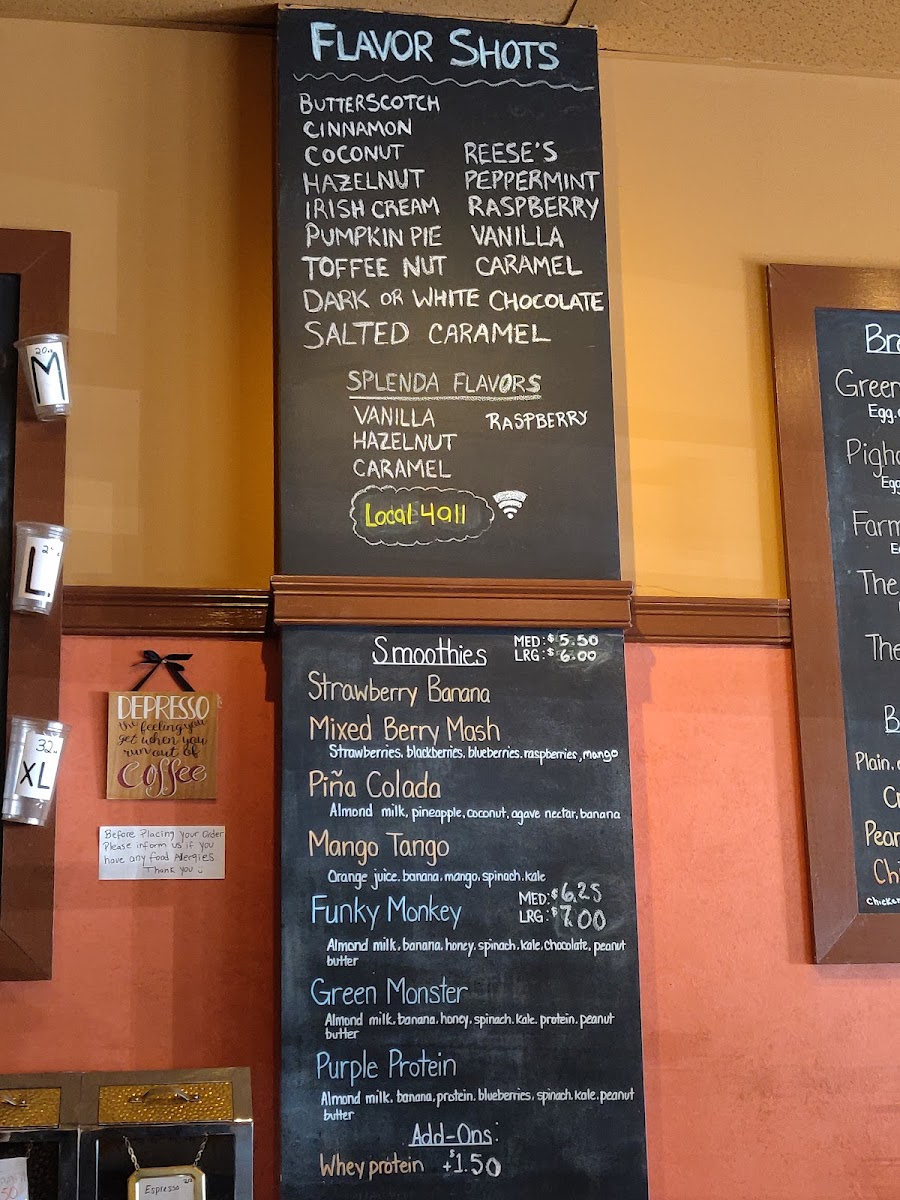 FLAVOR SHOTS
BUTTERSCOTCH
CINNAMON
COCONUT REESE'S
HAZELNUT PEPPERMINT
IRISH CREAM RASPBERRY
PUMPKIN PIE VANILLA
TOFFEE NUT CARAMEL
DARK OR WHITE CHOCOLATE
SALTED CARAMEL
SPLENDA FLAVORS
VANILLA RASPBERRY
HAZELNUT
CARAMEL
Local 4all
Smoothies MED: $5.50
LRG: $6.00
Strawberry Banana
Mixed Berry Mash
Strawberries, blackberries, blueberries, raspberries, mango
Piña Colada
Almond milk, pineapple, coconut, agave nectar, banana
Mango Tango
Orange juice, banana, mango, spinach, kale
Funky Monkey MED: $6.25
LRG: $7.00
Almond milk, banana, honey, spinach, kale, chocolate, peanut
butter
Green Monster
Almond milk, banana, honey, spinach, kale, protein, peanut
butter
Purple Protein
Almond milk, banana, protein, blueberries, spinach, kale, peanut
butter
Add-Ons:
Whey protein +$1.50
20oz
M
L
32oz
XL
DEPRESSO
the feeling you
get when you
run out of
Coffee
Before Placing your Order
Please inform us if you
have any food Allergies
Thank you
Espresso
Green
Egg,
Farm
The
The
B
Plain,